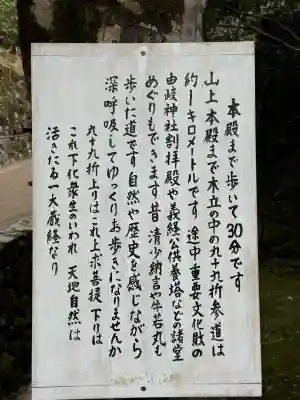 本殿まで歩いて30分です
山上本殿まで木立の中の九十九折参道は
約一キロメートルです 途中重要文化財の
由岐神社割拝殿や義経公供養塔などの諸堂
めぐりもできます 昔 清少納言や牛若丸も
歩いた道です 自然や歴史を感じながら
深呼吸してゆっくりお歩きになりませんか
九十九折上りはこれ上求菩提 下りは
これ下化衆生のいわれ 天地自然は
活きたる一大蔵経なり